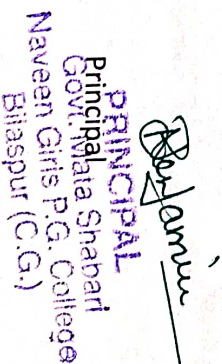 Benjamin
Principal
PRINCIPAL
Govt. Mata Shabari
Naveen Girls P.G. College
Bilaspur (C.G.)